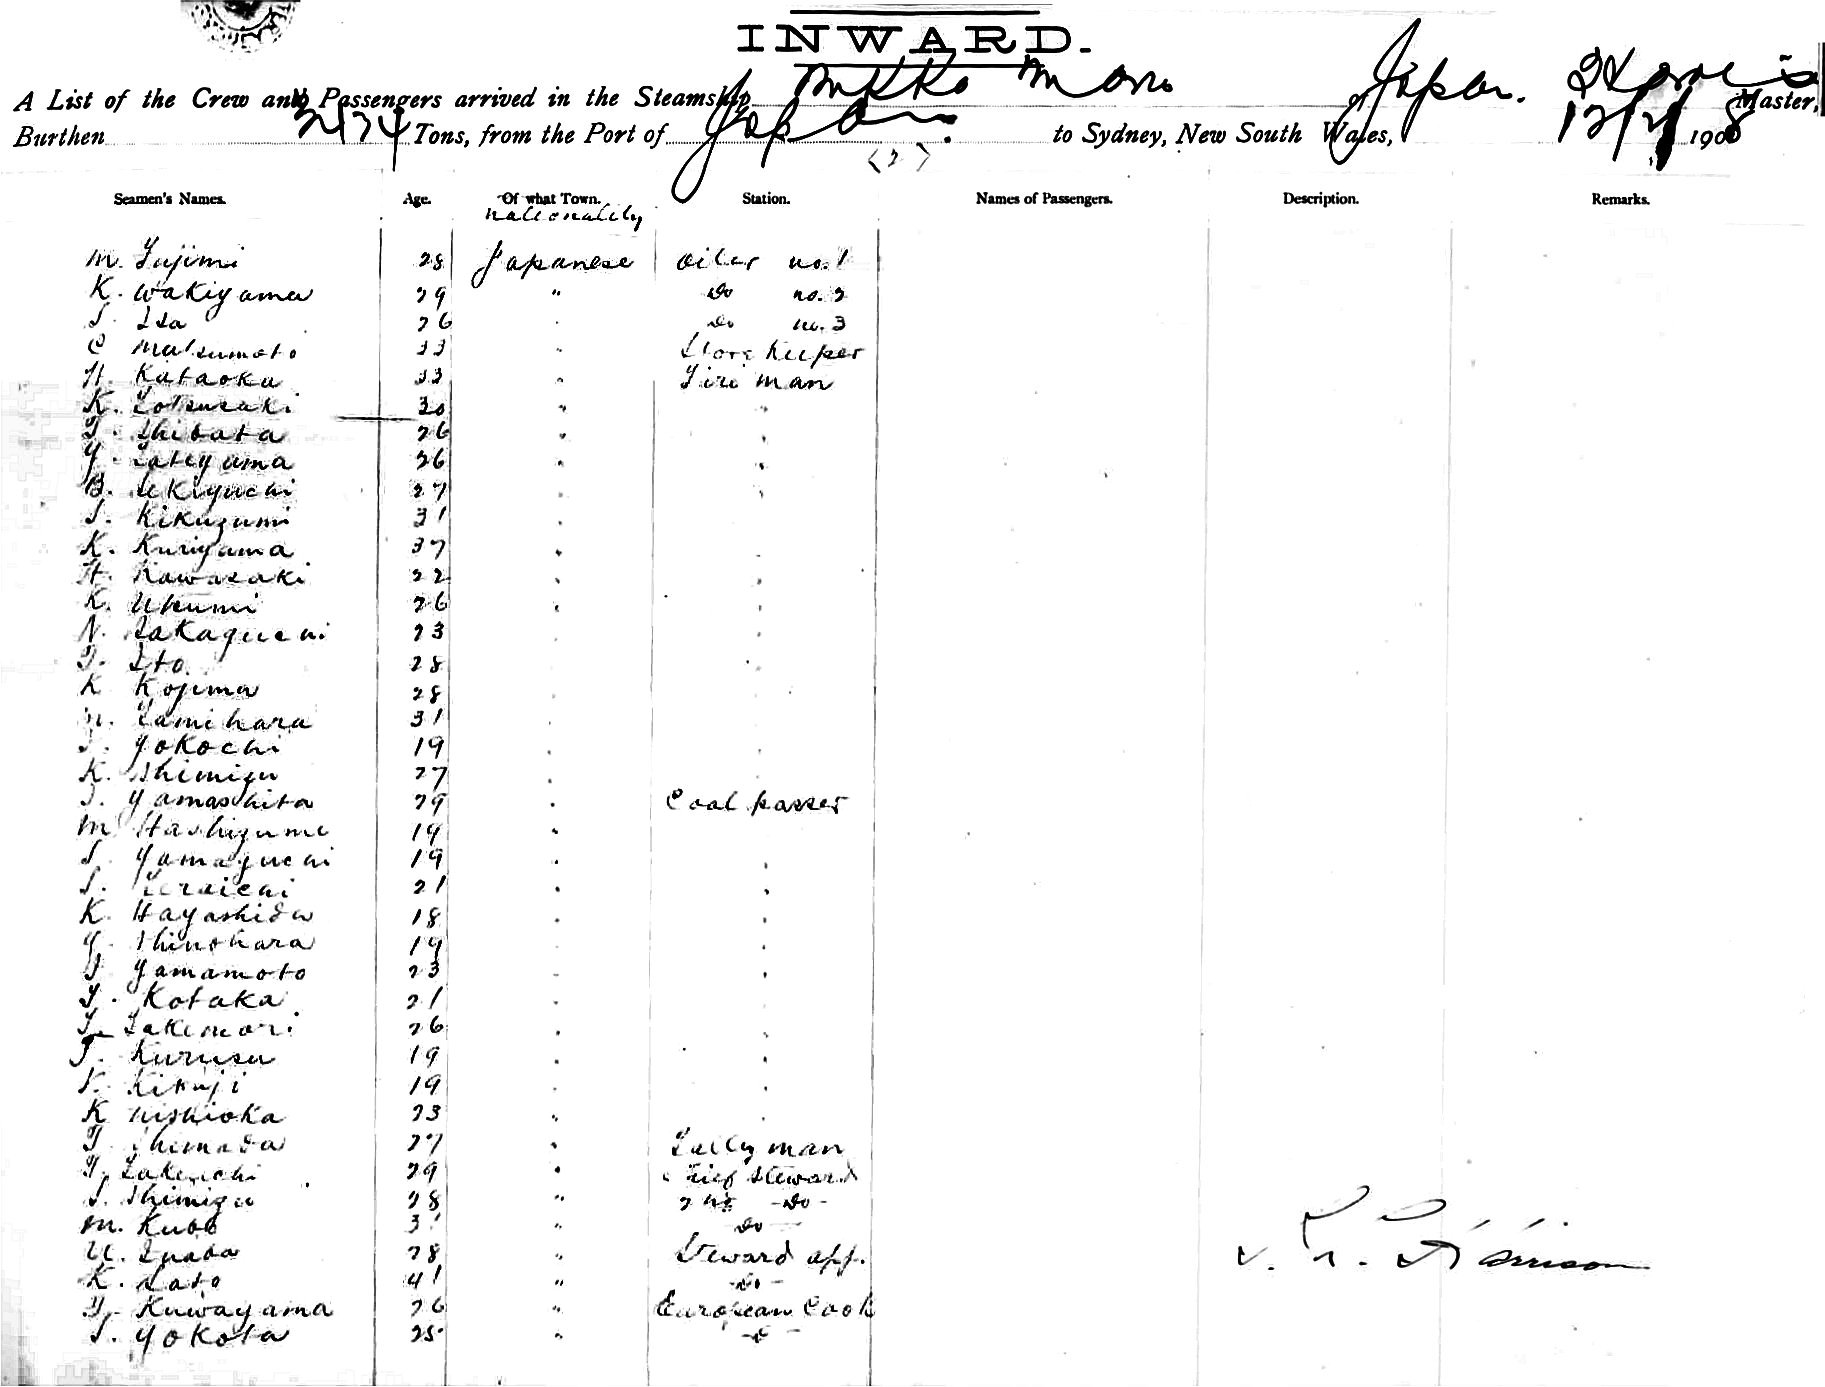 INWARD.
A List of the Crew and Passengers arrived in the Steamship Nikko Maru of Japan. Master,
Burthen Tons, from the Port of Japan. to Sydney, New South Wales, 1908
Seamen's Names. Age. Of what Town. Station. Names of Passengers. Description. Remarks.
nationality
M. Fujimi 28 Japanese oiler no.1
K. Wakiyama 29 " Do no. 2
26 " Do no. 3
C Matsumoto 33 " Store Keeper
H. Kataoka 33 " Fire man
K. 30 " "
T. Shibata 26 " "
Y. Tateyama 26 " "
B. Sekiguchi 27 " "
S. Kikuzumi 31 "
K. Kuriyama 37 " "
H. Kawasaki 22 " "
K. Utsumi 26 " "
N. Sakaguchi 23 " "
T. Ito 28 " "
K Kojima 28 " "
31 "
Yokochi 19 " "
K. Shimizu 27 "
S. Yamashita 29 " Coal passer
M Hashizume 19 "
S. Yamaguchi 19 " "
S. 21 " "
K. Hayashida 18 " "
Y. Shinohara 19 " "
Yamamoto 23 " "
Y. Kotaka 21 " "
Takemori 26 " "
T. Kurusu 19 " "
Kikuji 19 " "
K Nishioka 23 " "
T. Shimada 27 " Tally man
T. Takeuchi 29 " Chief Steward
S. Shimizu 28 " 2nd -Do-
M. Kubo 31 " -Do-
U. 28 " Steward app.
K. Sato 41 " -Do-
Kuwayama 26 " European Cook
S. Yokota 25 "
Harrison